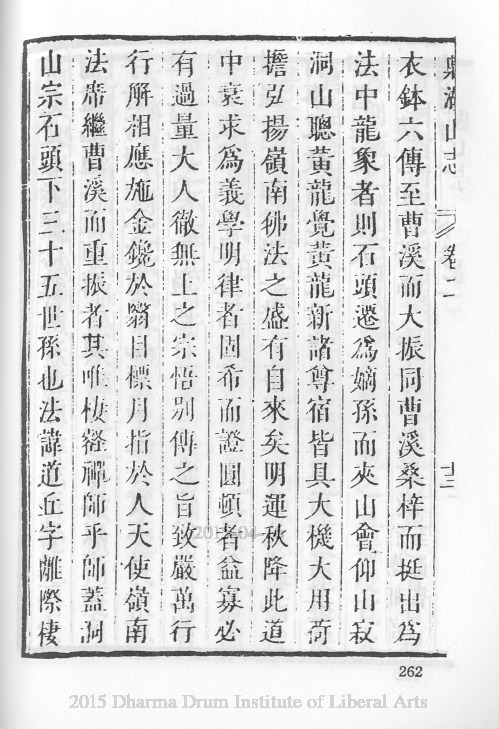 鼎湖山志 卷二 十三
衣鉢六傳至曹溪而大振同曹溪桑梓而挺出爲
法中龍象者則石頭遷爲嫡孫而夾山會仰山寂
洞山聰黃龍覺黃龍新諸尊宿皆具大機大用荷
擔弘揚嶺南佛法之盛有自來矣明運秋降此道
中衰求爲義學明律者固希而證圓頓者益寡必
有過量大人徹無上之宗悟別傳之旨致嚴萬行
行解相應施金鎞於翳目標月指於人天使嶺南
法席繼曹溪而重振者其唯棲壑禪師乎師蓋洞
山宗石頭下三十五世孫也法諱道丘字離際棲
262
2015 Dharma Drum Institute of Liberal Arts